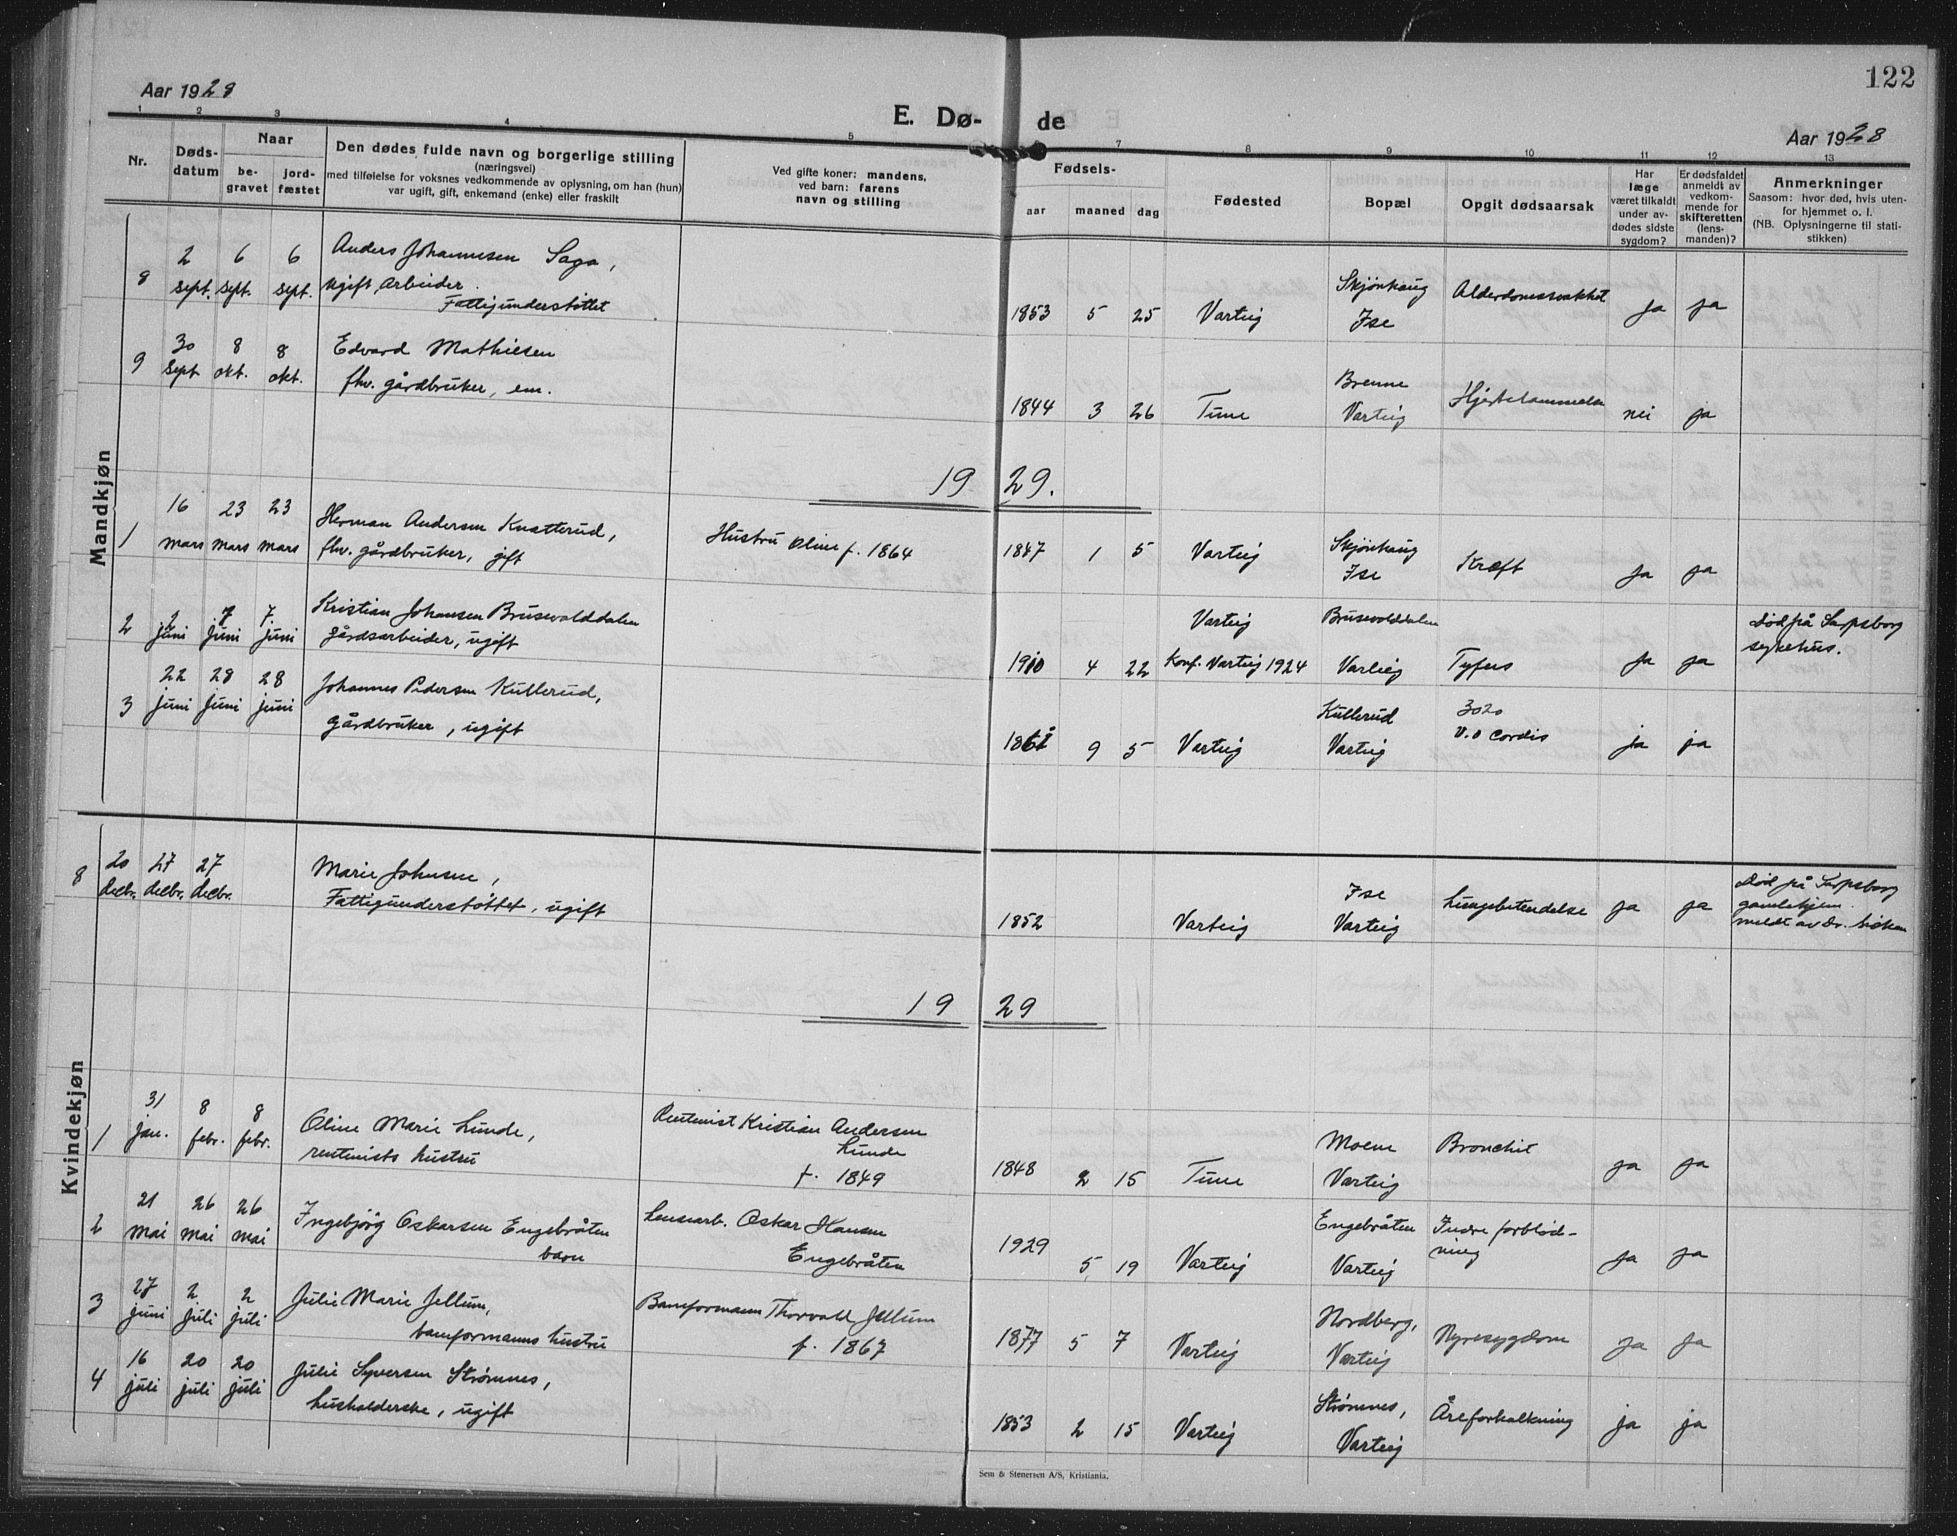 122
Aar 1928
E. Dø- de
Aar 1928
1 2 3 4 5 7 8 9 10 11 12 13
Nr.
Døds-
datum
Naar
be-
gravet
jord-
fæstet
Den dødes fulde navn og borgerlige stilling
(næringsvei)
med tilføielse for voksnes vedkommende av oplysning, om han (hun)
var ugift, gift, enkemand (enke) eller fraskilt
Ved gifte koner: mandens,
ved barn: farens
navn og stilling
Fødsels-
aar maaned dag
Fødested
Bopæl
Opgit dødsaarsak
Har
læge
været tilkaldt
under av-
dødes sidste
sygdom?
Er dødsfaldet
anmeldt av
vedkom-
mende for
skifteretten
(lens-
manden)?
Anmerkninger
Saasom: hvor død, hvis uten-
for hjemmet o. l.
(NB. Oplysningerne til stati-
stikken)
Mandkjøn
8 2 sept. 6 sept. 6 sept. Anders Johannesen Saga,
ugift, arbeider.
Fattigunderstøttet
1853 5 25 Varteig Skjönhaug
Ise Alderdomssvakhet ja ja
9 30 sept 8 okt. 8 okt. Edvard Mathiesen
fhv. gårdbruker, em.
1844 3 26 Tune Brenne
Varteig Hjertelammelse nei ja
19 29.
1 16 mars 23 mars 23 mars Herman Andersen Knatterud,
fhv. gårdbruker, gift
Hustru Oline f. 1864
1847 1 5 Varteig Skjönhaug
Ise Kræft ja ja
2 2 juni 7 juni 7. juni Kristian Johansen Brusevolddalen
gårdsarbeider, ugift
1910 4 22 Varteig
Konf. Varteig 1924 Brusevolddalen
Varteig Tyfus ja ja Död på Sarpsborg
sykehus.
3 22 juni 28 juni 28 juni Johannes Pedersen Kullerud,
gårdbruker, ugift
9 5 Varteig Kullerud
Varteig
V.o cordis ja ja
Kvindekjøn
8 20 decbr. 27 decbr. 27 decbr. Marie Johnsen,
Fattigunderstøttet, ugift
1852 Varteig Ise
Varteig Lungebetendelse ja ja Död på Sarpsborg
gamlehjem.
meldt av dr.
19 29
1 31 jan. 8 febr. 8 febr. Oline Marie Lunde,
rentenists hustru
Rentenist Kristian Andersen
Lunde
f. 1849
1848 2 15 Tune Moene
Varteig Bronchit ja ja
2 21 mai 26 mai 26 mai Ingebjörg Oskarsen Engebråten
barn
Lensearb. Oskar Hansen
Engebråten
1929 5 19 Varteig Engebråten
Varteig Indre forblød-
ning ja ja
3 27 juni 2 juli 2 juli Julie Marie Jellum,
baneformanns hustru
Baneformann Thorvald Jellum
f. 1867
1877 5 7 Varteig Nordberg,
Varteig Nyresygdom ja ja
4 16 juli 20 juli 20 juli Julie Syversen Strømnes,
husholderske, ugift
1853 2 15 Varteig Strømnes,
Varteig Åreforkalkning ja ja
Sem & Stenersen A/S, Kristiania.